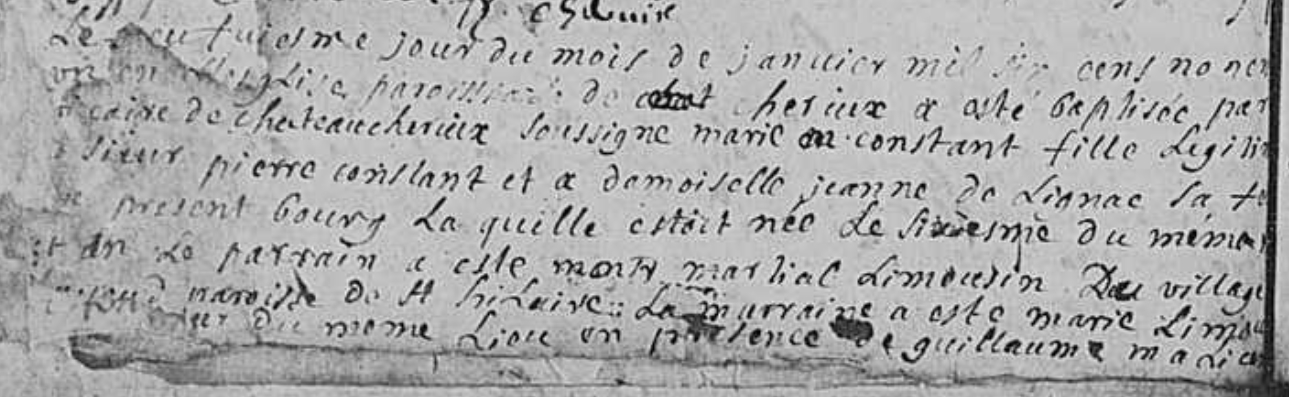 chiluire
Le huituiesme jour du mois de januier mil six cens nonen
vn en Lesglise paroissiale de cheriux a esté baptisée par
vicaire de chateaucheriux soussigne marie constant fille Legitim
sieur pierre constant et a demoiselle jeanne de Lignac sa
present bourg La quille estoit née Le sixiesme du mémem
et an Le parrain a esté martial Limousin Du village
paroisse de st hilaire La marraine a esté marie Limou
du meme Lieu en presence de guillaume